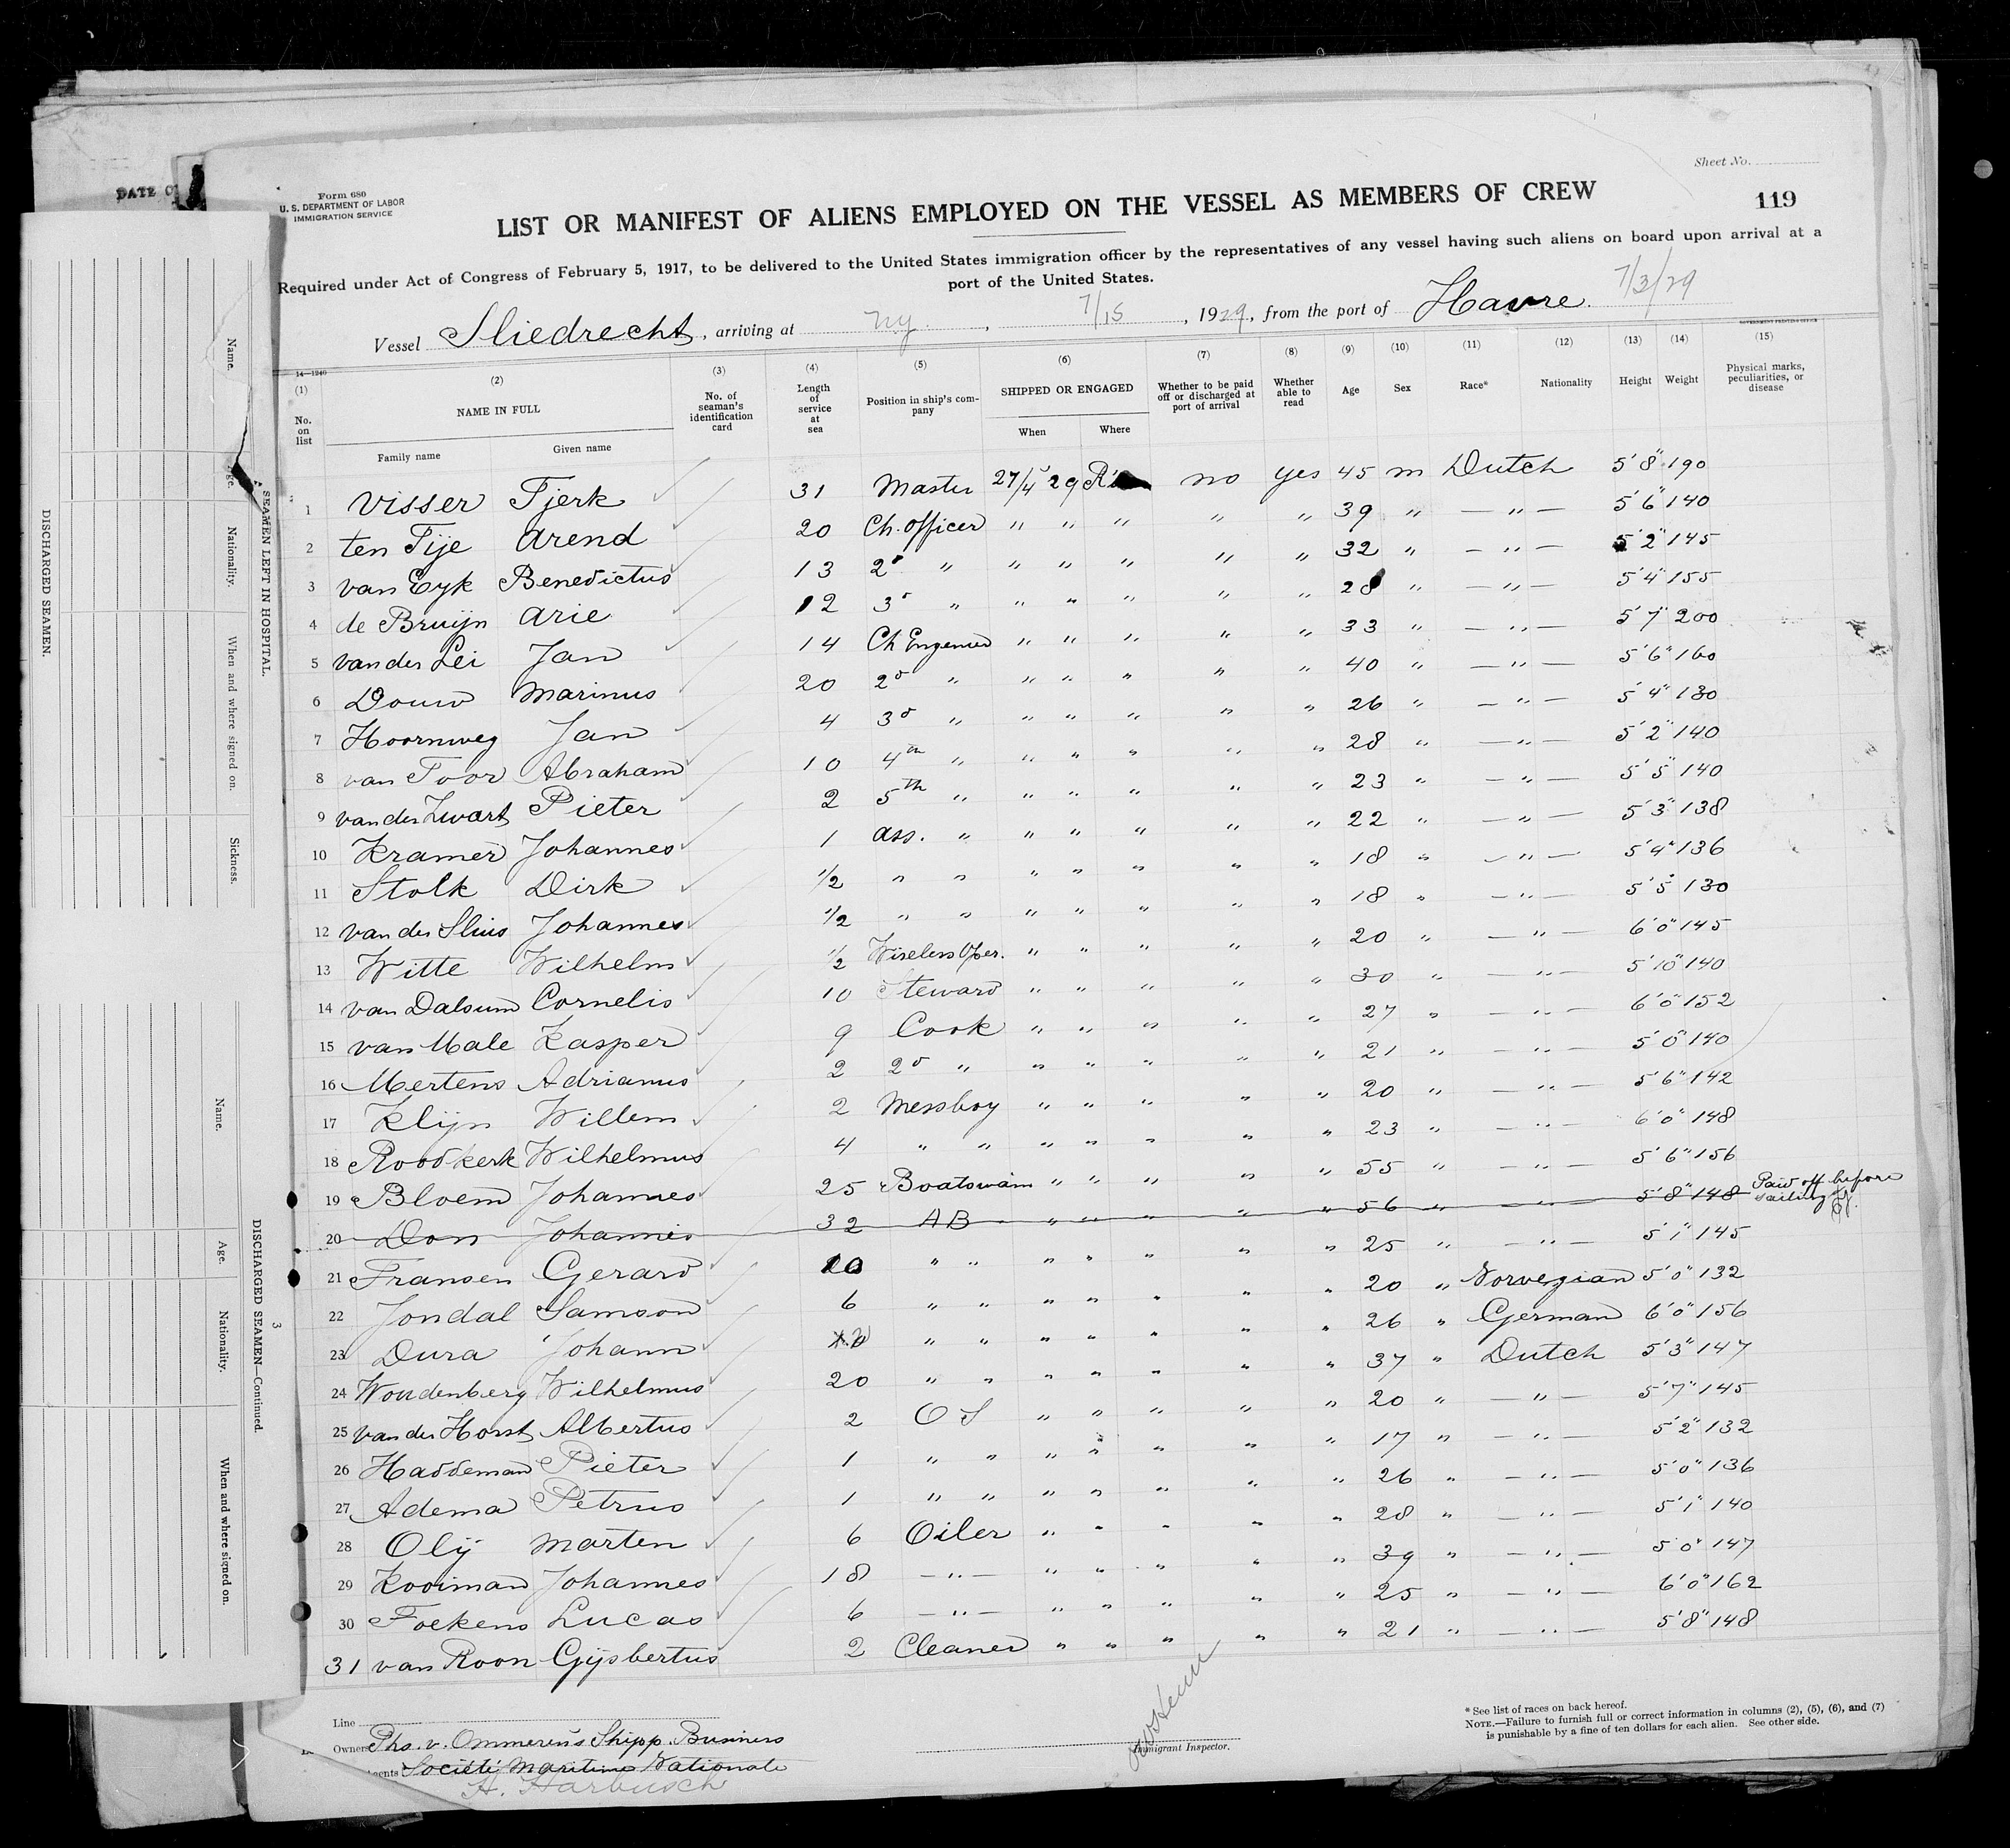 Sheet No.
DATE O
Form 680
U. S. DEPARTMENT OF LABOR
IMMIGRATION SERVICE
LIST OR MANIFEST OF ALIENS EMPLOYED ON THE VESSEL AS MEMBERS OF CREW
119
Required under Act of Congress of February 5, 1917, to be delivered to the United States immigration officer by the representatives of any vessel having such aliens on board upon arrival at a
port of the United States.
Vessel Sliedrecht, arriving at ny, 7/15, 1929, from the port of Havre. 7/3/29
14—1240
GOVERNMENT PRINTING OFFICE
(1) (2) (3) (4) (5) (6) (7) (8) (9) (10) (11) (12) (13) (14) (15)
No. on list
NAME IN FULL
Family name Given name
No. of seaman's identification card
Length of service at sea
Position in ship's company
SHIPPED OR ENGAGED
When Where
Whether to be paid off or discharged at port of arrival
Whether able to read
Age Sex Race* Nationality Height Weight
Physical marks, peculiarities, or disease
1 Visser Tjerk 31 Master 27/4 29 no yes 45 m Dutch 5'8" 190
2 ten Tije Arend 20 Ch. Officer " " " " " 39 " — " — 5'6" 140
3 van Eyk Benedictus 13 2d " " " " " " 32 " — " — 5'2" 145
4 de Bruijn Arie 12 3d " " " " " " 28 " — " — 5'4" 155
5 van der Lei Jan 14 Ch Engenier " " " " " 33 " — " — 5'7" 200
6 Douw Marinus 20 2d " " " " " " 40 " — " — 5'6" 160
7 Hoornweg Jan 4 3d " " " " " " 26 " — " — 5'4" 130
8 van Toor Abraham 10 4th " " " " " " 28 " — " — 5'2" 140
9 van der Zwart Pieter 2 5th " " " " " " 23 " — " — 5'5" 140
10 Kramer Johannes 1 ass. " " " " " " 22 " — " — 5'3" 138
11 Stolk Dirk 1/2 " " " " " " " 18 " — " — 5'4" 136
12 van der Sluis Johannes 1/2 " " " " " " " 18 " — " — 5'5" 130
13 Witte Wilhelm 1/2 Wireless Oper. " " " " " 20 " — " — 6'0" 145
14 van Dalsum Cornelis 10 Steward " " " " " 30 " — " — 5'10" 140
15 van Male Kasper 9 Cook " " " " " 27 " — " — 6'0" 152
16 Mertens Adrianus 2 2d " " " " " " 21 " — " — 5'0" 140
17 Klijn Willem 2 Messboy " " " " " 20 " — " — 5'6" 142
18 Roodkerk Wilhelmus 4 " " " " " " " 23 " — " — 6'0" 148
19 Bloem Johannes 25 Boatswain " " " " " 55 " — " — 5'6" 156
20 Don Johannes 32 AB " " " " " 56 " — " — 5'8" 148 Paid off before sailing
21 Fransen Gerard 10 " " " " " " " 25 " — " — 5'1" 145
22 Jondal Samson 6 " " " " " " " 20 " Norwegian 5'0" 132
23 Dura Johann " " " " " " " 26 " German 6'0" 156
24 Woudenberg Wilhelmus 20 " " " " " " " 37 " Dutch 5'3" 147
25 van der Horst Albertus 2 OS " " " " " 20 " — " — 5'7" 145
26 Haddeman Pieter 1 " " " " " " " 17 " — " — 5'2" 132
27 Adema Petrus 1 " " " " " " " 26 " — " — 5'0" 136
28 Olij Marten 6 Oiler " " " " " 28 " — " — 5'1" 140
29 Kooiman Johannes 18 — " — " " " " " 39 " — " — 5'0" 147
30 Foekens Lucas 6 — " — " " " " " 25 " — " — 6'0" 162
31 van Roon Gijsbertus 2 Cleaner " " " " " 21 " — " — 5'8" 148
Line
Owners Phs. v. Ommeren's Shipp. Business
Agents Société Maritime Nationale
A. Harbusch
Immigrant Inspector.
* See list of races on back hereof.
NOTE.—Failure to furnish full or correct information in columns (2), (5), (6), and (7)
is punishable by a fine of ten dollars for each alien. See other side.
DISCHARGED SEAMEN.
SEAMEN LEFT IN HOSPITAL.
Name.
Age.
Nationality.
When and where signed on.
Sickness.
DISCHARGED SEAMEN—Continued.
3
Name.
Age.
Nationality.
When and where signed on.